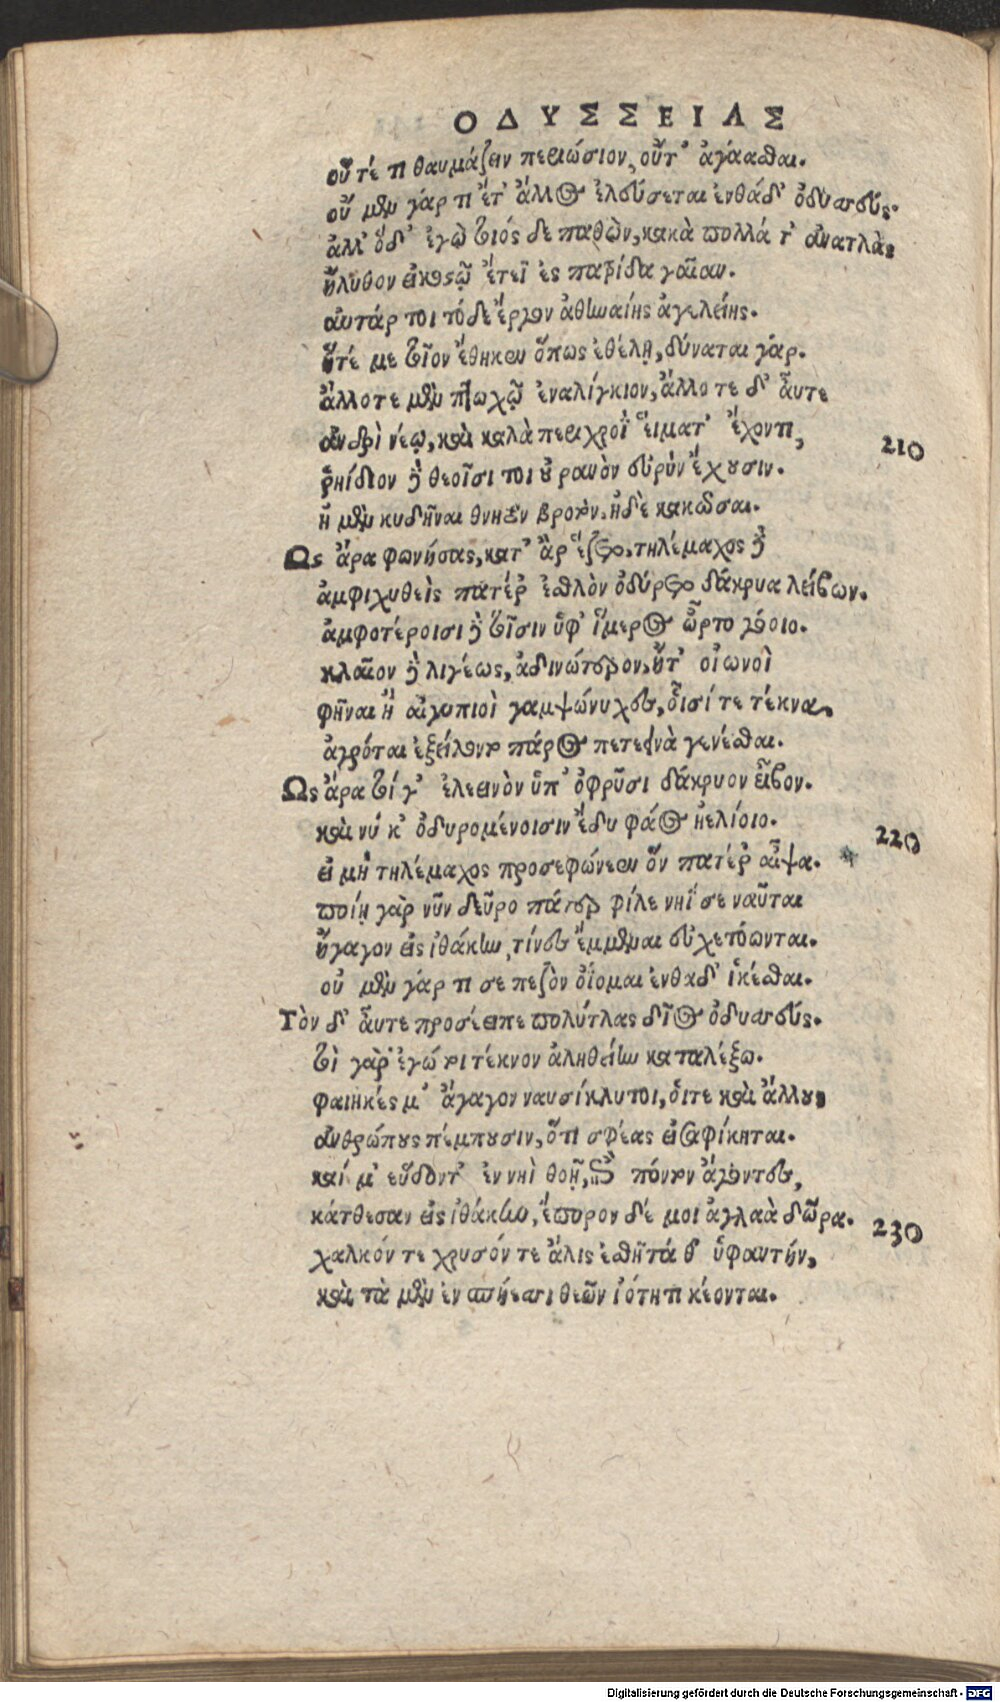 ΟΔΥΣΣΕΙΑΣ
οὔτέ τι θαυμάζειν περιώσιον, οὔτ' ἀγάασθαι.
οὐ μὲν γάρ τι ἔτ' ἄλλος ἐλεύσεται ἐνθάδ' ὀδυσσεύς.
ἀλλ' ὅδ' ἐγὼ τοιός δε παθὼν, κακὰ πολλά τ' ἀνατλὰς
ἤλυθον εἰκοστῷ ἔτεϊ ἐς πατρίδα γαῖαν.
αὐτάρ τοι τόδε ἔργον ἀθηναίης ἀγελείης.
ἥτέ με τοῖον ἔθηκεν ὅπως ἐθέλῃ, δύναται γάρ.
ἄλλοτε μὲν πτωχῷ ἐναλίγκιον, ἄλλοτε δ' αὖτε
ἀνδρὶ νέῳ, καὶ καλὰ περιχροῒ εἵματ' ἔχοντι,
210
ῥηΐδιον δὲ θεοῖσι τοι οὐρανὸν εὐρὺν ἔχουσιν.
ἢ μὲν κυδῆναι θνητὸν βροτὸν, ἠδὲ κακῶσαι.
Ως ἄρα φωνήσας, κατ' ἂρ ἕζετο, τηλέμαχος δὲ
ἀμφιχυθεὶς πατέρ' ἐσθλὸν ὀδύρετο δάκρυα λείβων.
ἀμφοτέροισι δὲ τοῖσιν ὑφ' ἵμερος ὦρτο γόοιο.
κλαῖον δὲ λιγέως, ἀδινώτερον, ἤτ' οἰωνοὶ
φῆναι ἢ αἰγυπιοὶ γαμψώνυχες, οἷσί τε τέκνα
ἀγρόται ἐξείλοντο πάρος πετεεινὰ γενέσθαι.
Ως ἄρα τοί γ' ἐλεεινὸν ὑπ' ὀφρῦσι δάκρυον εἶβον.
καὶ νύ κ' ὀδυρομένοισιν ἔδυ φάος ἠελίοιο.
220
εἰ μὴ τηλέμαχος προσεφώνεεν ὃν πατέρ' αἶψα. *
ποίῃ γὰρ νῦν δεῦρο πάτερ φίλε νηΐ σε ναῦται
ἤγαγον εἰς ἰθάκην, τίνες ἔμμεναι εὐχετόωνται.
οὐ μὲν γάρ τι σε πεζὸν ὀΐομαι ἐνθαδ' ἱκέσθαι.
Τὸν δ' αὖτε προσέειπε πολύτλας δῖος ὀδυσσεύς.
τοὶ γὰρ ἐγώ τοι τέκνον ἀληθείην καταλέξω.
φαιηκές μ' ἄγαγον ναυσίκλυτοι, οἵτε καὶ ἄλλους
ἀνθρώπους πέμπουσιν, ὅτι σφέας εἰσαφίκηται.
καί μ' εὕδοντ' ἐν νηῒ θοῇ, ἐπὶ πόντον ἄγοντες,
κάτθεσαν εἰς ἰθάκην, ἔπορον δέ μοι ἀγλαὰ δῶρα.
230
χαλκόν τε χρυσόν τε ἅλις ἐσθῆτά θ' ὑφαντήν,
καὶ τὰ μὲν ἐν σπήεσσι θεῶν ἰότητι κέονται.
Digitalisierung gefördert durch die Deutsche Forschungsgemeinschaft - DFG